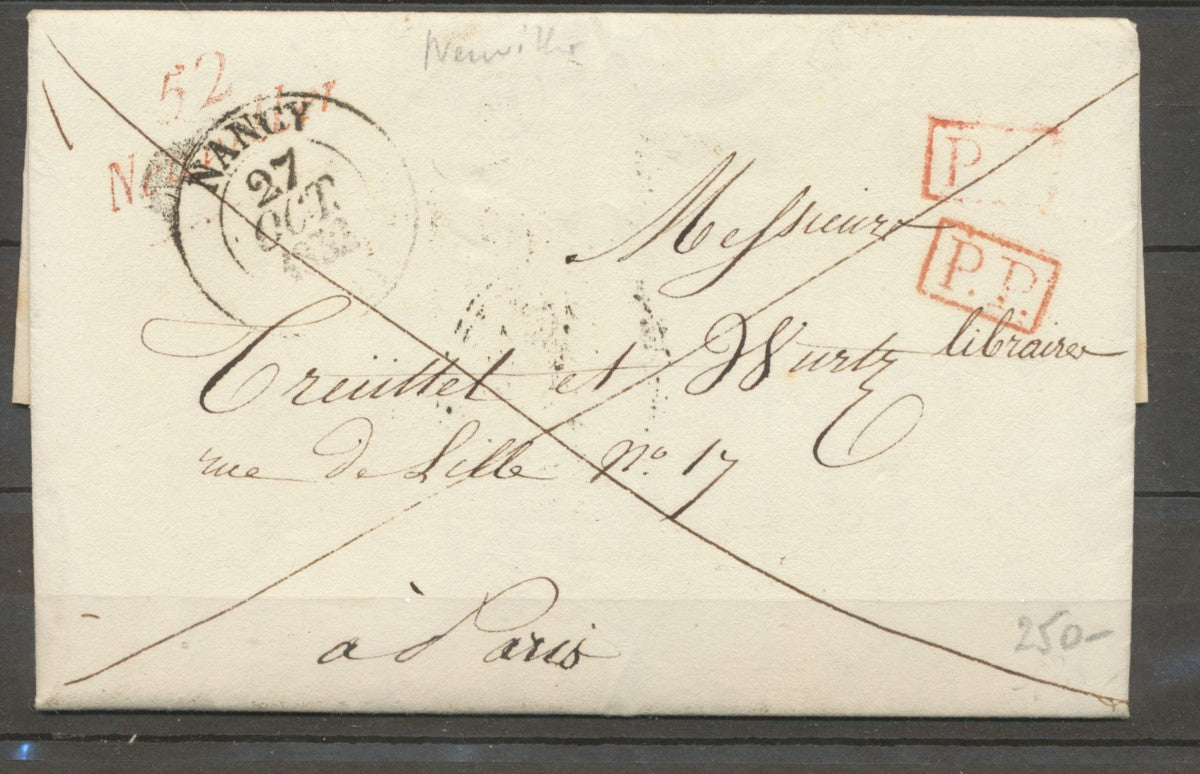 Neuviller
52
NANCY
27
OCT.
P.P.
P.P.
Messieurs
Treuttel et Wurtz libraires
rue de Lille No. 17
à Paris
250-